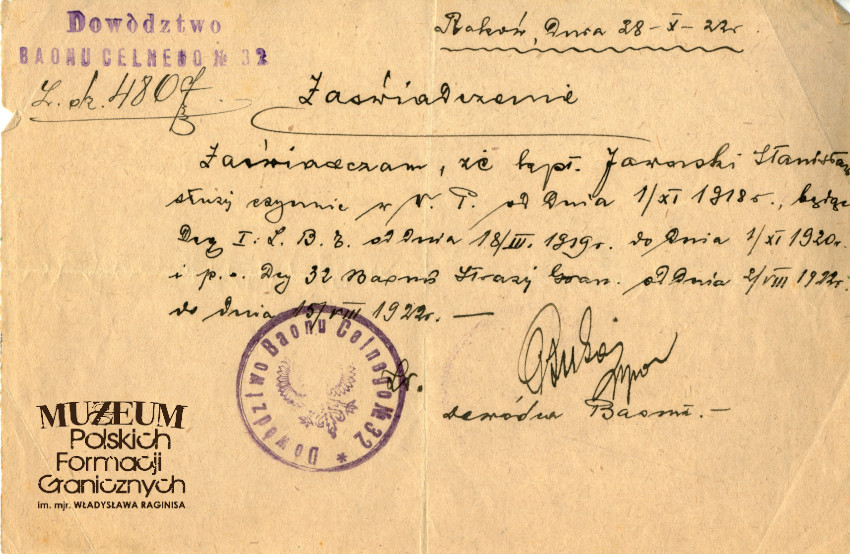 Dowództwo
BAONU CELNEGO № 32
L. dz. 480
Raków, dnia 28-X-22r
Zaświadczenie
Zaświadczam, że kpt. Jaworski Stanisław
służy czynnie w W. P. od dnia 1/XI 1918r., będąc
Dcą I. L. B. E. od dnia 18/III. 1919r. do dnia 1/XI 1920r.
i p.o. Dcy 32 Baonu Straży Gran. od dnia 2/VIII 1922r.
do dnia 15/VIII 1922r. —
Dowództwo Baonu Celnego № 32 *
dowódca Baonu. —
MUZEUM
Polskich
Formacji
Granicznych
im. mjr. WŁADYSŁAWA RAGINISA